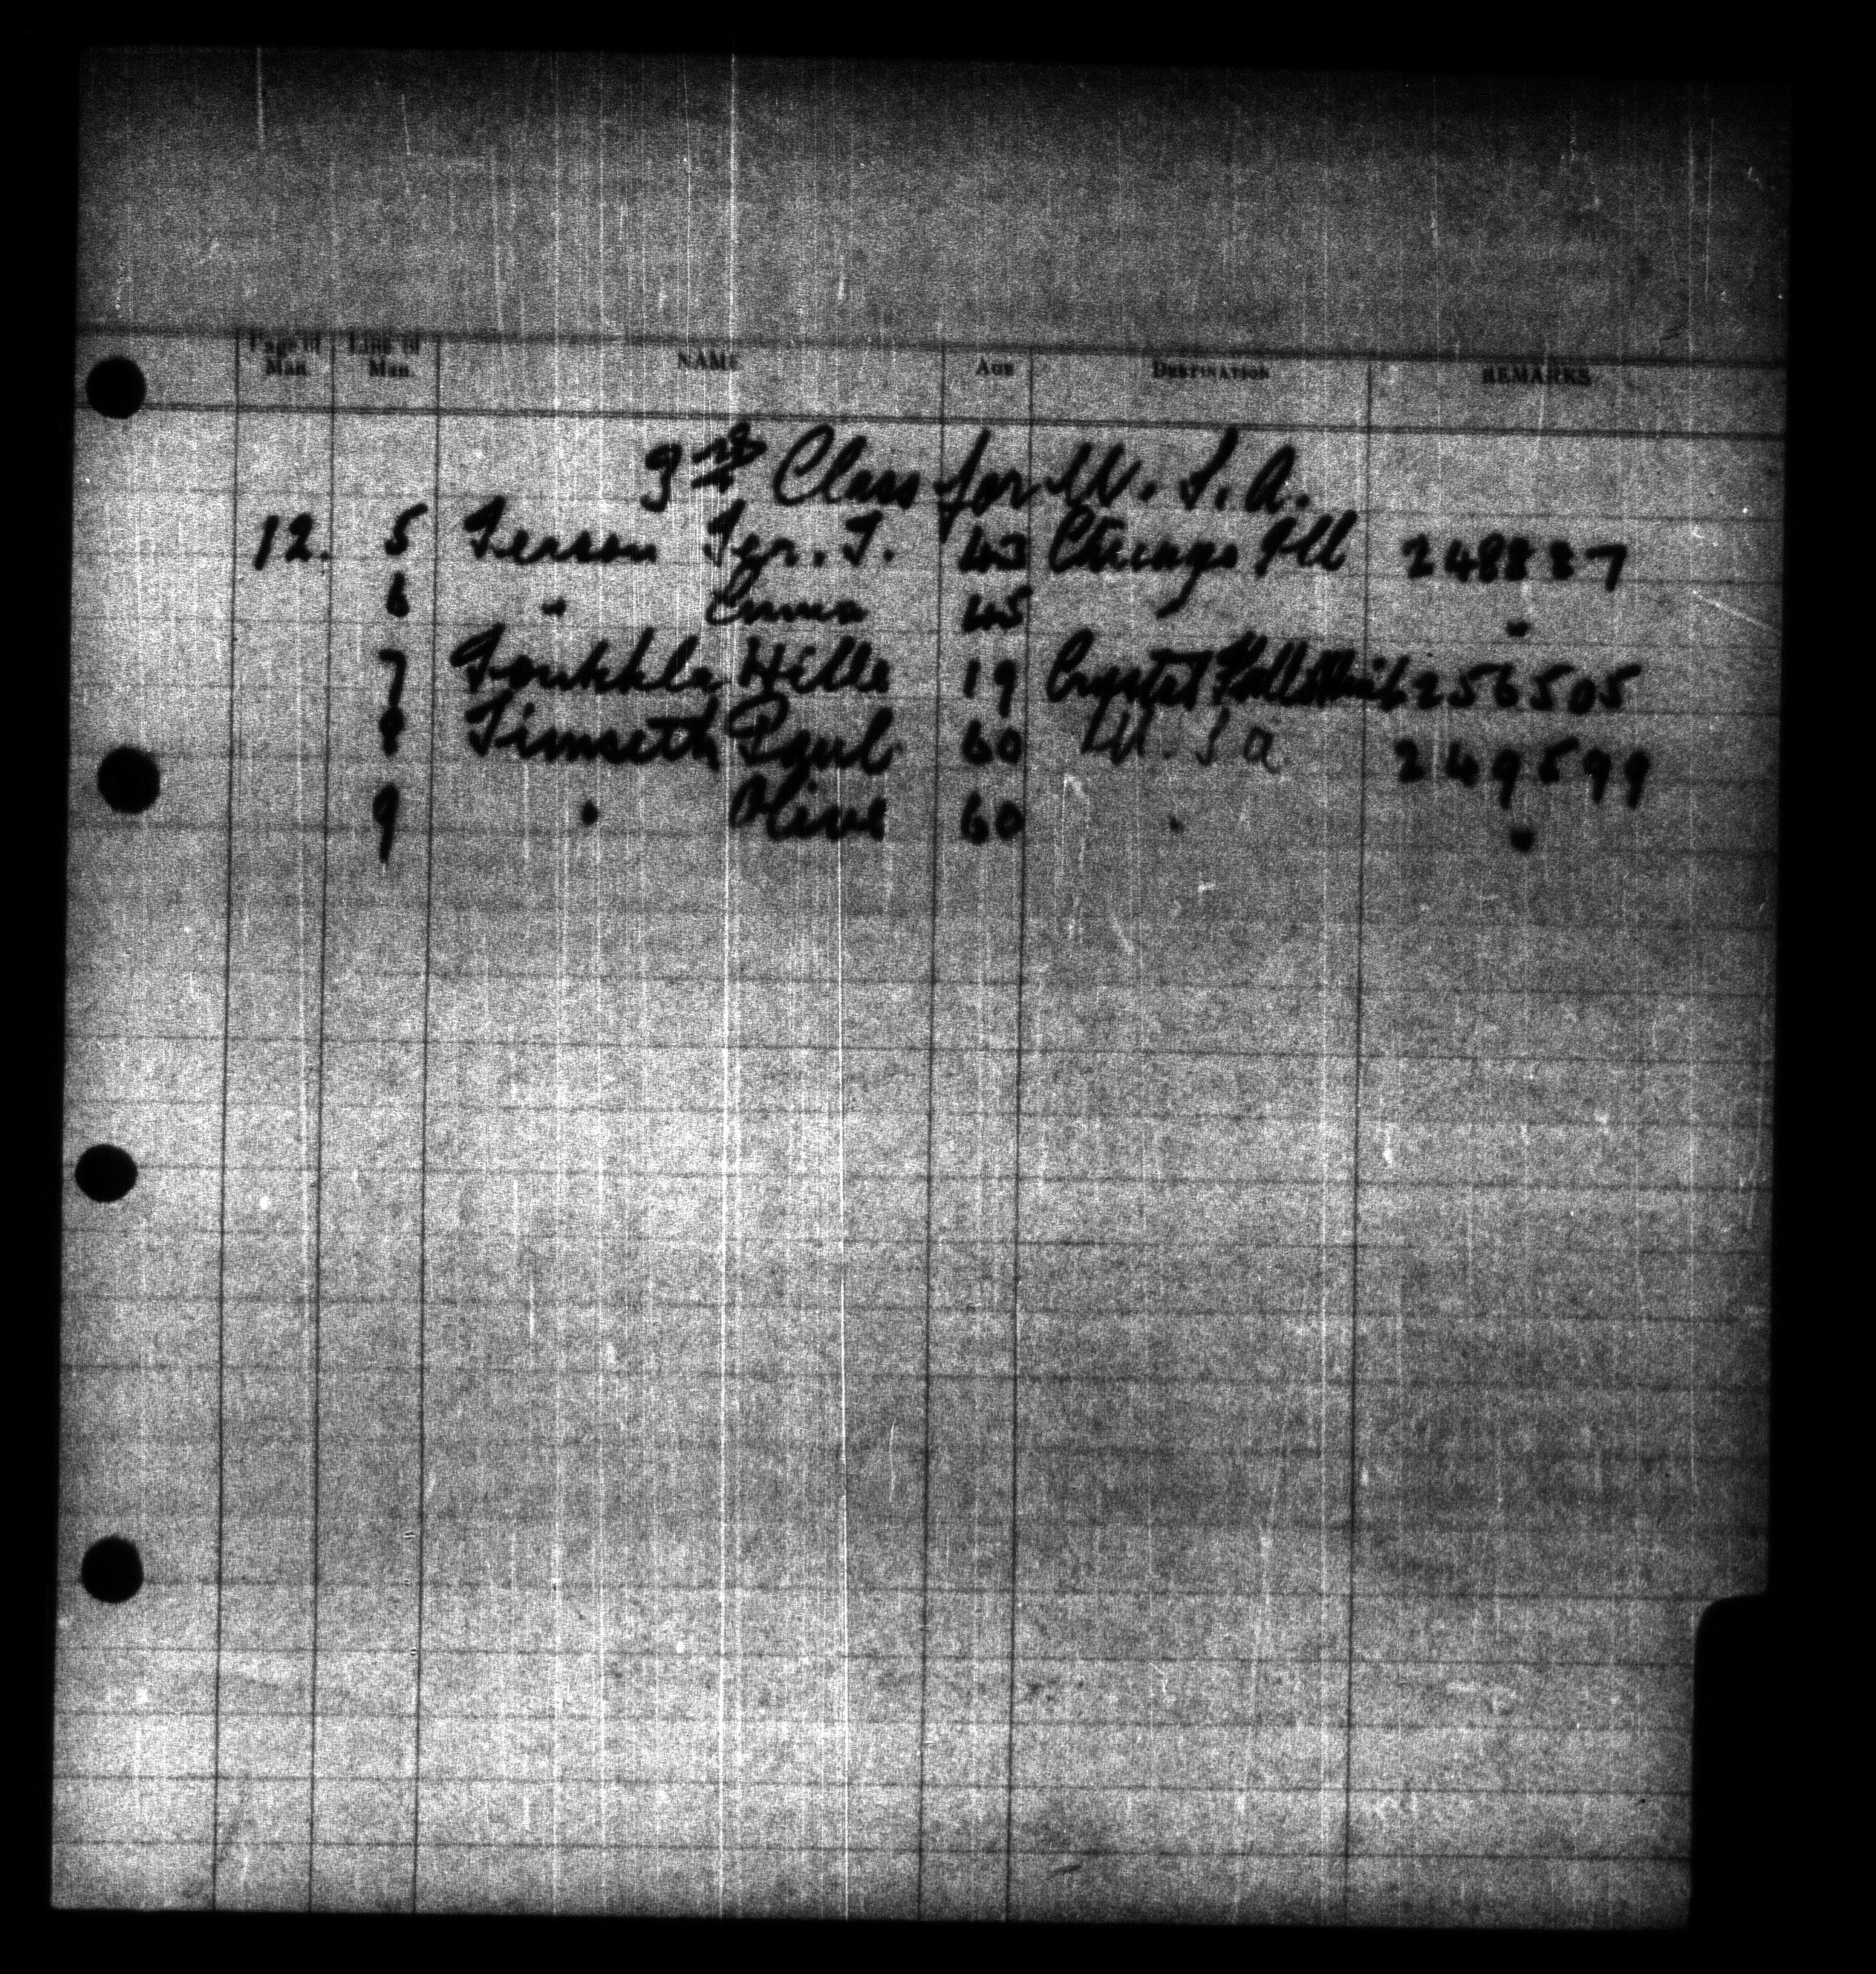 Page of Man. Line of Man. NAME AGE DESTINATION REMARKS
3rd Class for U. S. A.
12. 5 Ferson T. 43 Chicago Ill 248887
6 " Emma 45 " "
7 Hille 19 Crystal Falls Mich 256505
8 Timseth Paul 60 U. S a 249599
9 " Olive 60 " "